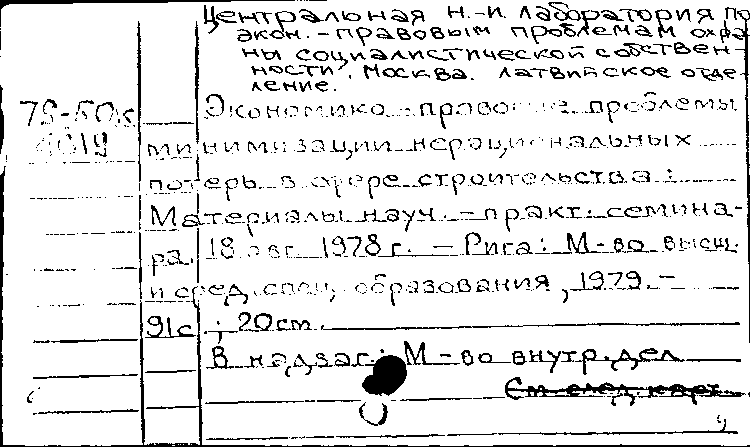 Центральная н.-и. лаборатория по
экон.-правовым проблемам охра
ны социалистической собствен-
ности, Москва. Латвийское отде-
ление.
Экономико-правовые проблемы
минимизации нерациональных
потерь в сфере строительства:
Материалы науч.-практ. семина-
ра. 18 авг. 1978 г. – Рига: М-во высш.
и сред. спец. образования, 1979. –
91с.; 20см.
В надзаг.: М-во внутр. дел
См. след. карт.